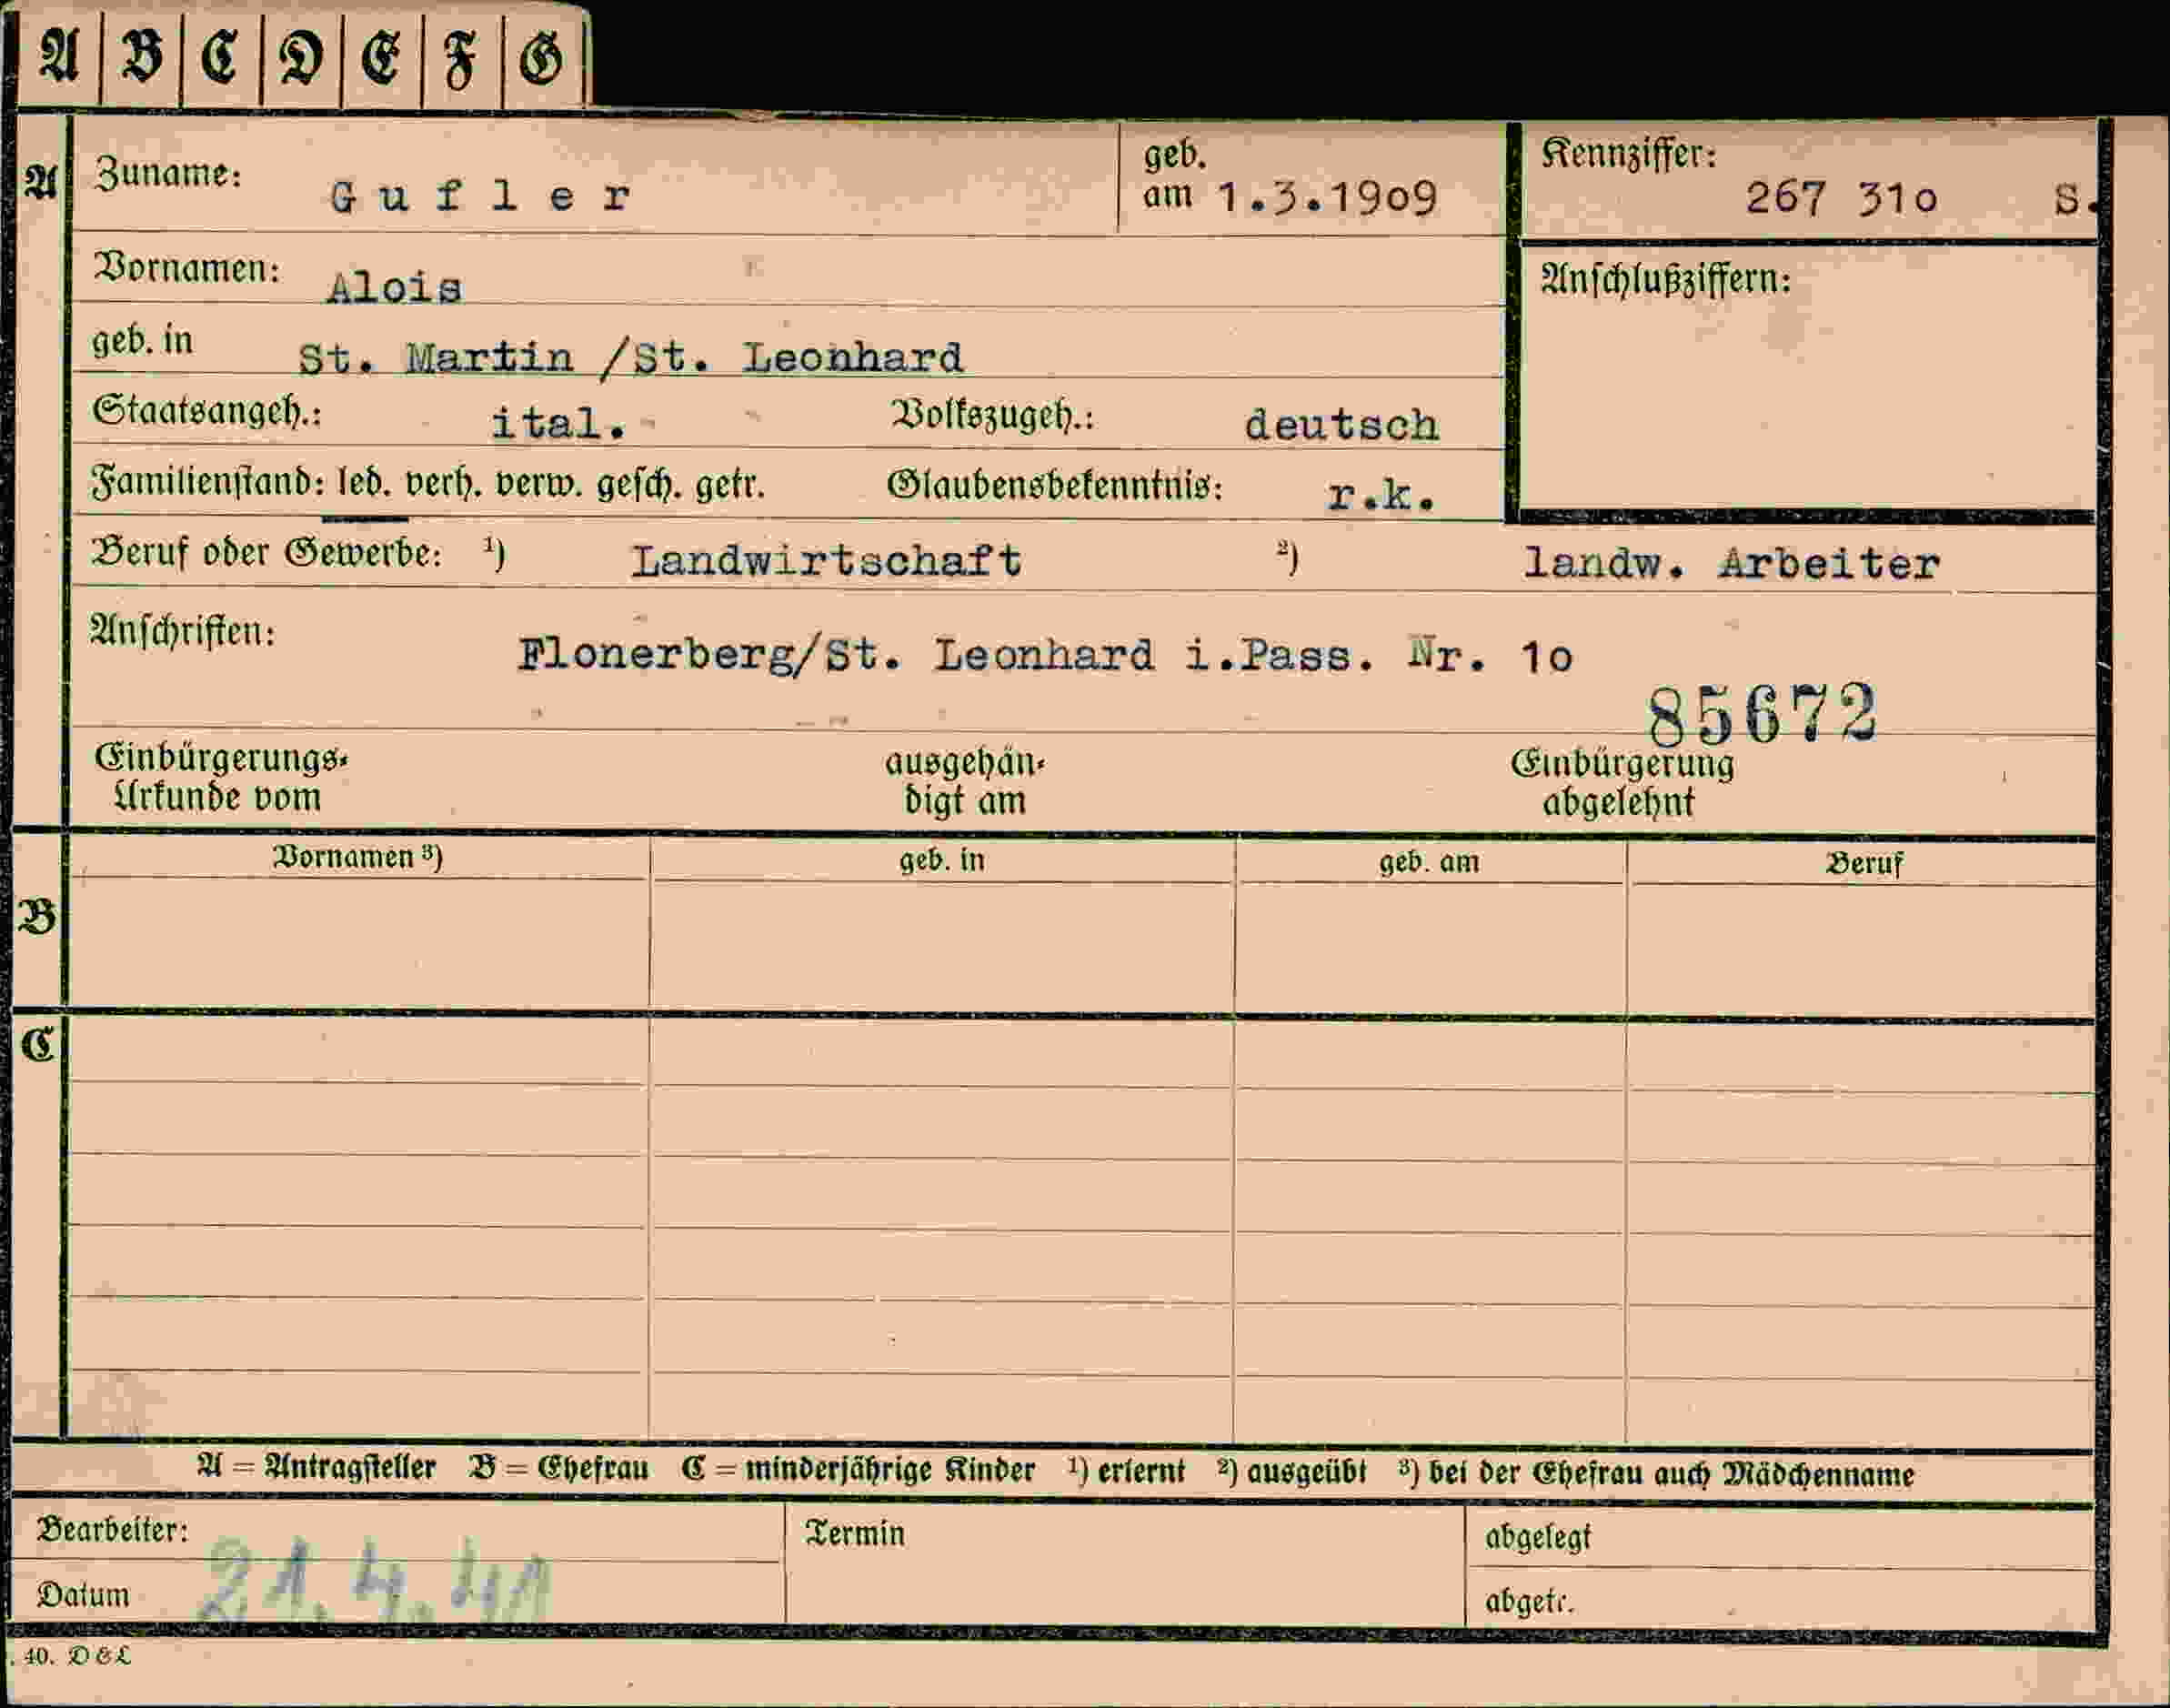 A B C D E F G
A Zuname: Gufler geb. am 1.3.1909 Kennziffer: 267 310 S.
Vornamen: Alois Anschlußziffern:
geb. in St. Martin /St. Leonhard
Staatsangeh.: ital. Volkszugeh.: deutsch
Familienstand: led. verh. verw. gesch. getr. Glaubensbekenntnis: r.k.
Beruf oder Gewerbe: ¹) Landwirtschaft ²) landw. Arbeiter
Anschriften: Flonerberg/St. Leonhard i.Pass. Nr. 10
85672
Einbürgerungs- ausgehän- Einbürgerung
Urkunde vom digt am abgelehnt
Vornamen ³) geb. in geb. am Beruf
B
C
A = Antragsteller B = Ehefrau C = minderjährige Kinder ¹) erlernt ²) ausgeübt ³) bei der Ehefrau auch Mädchenname
Bearbeiter: Termin abgelegt
Datum 21.4.41 abgetr.
. 40. D & L